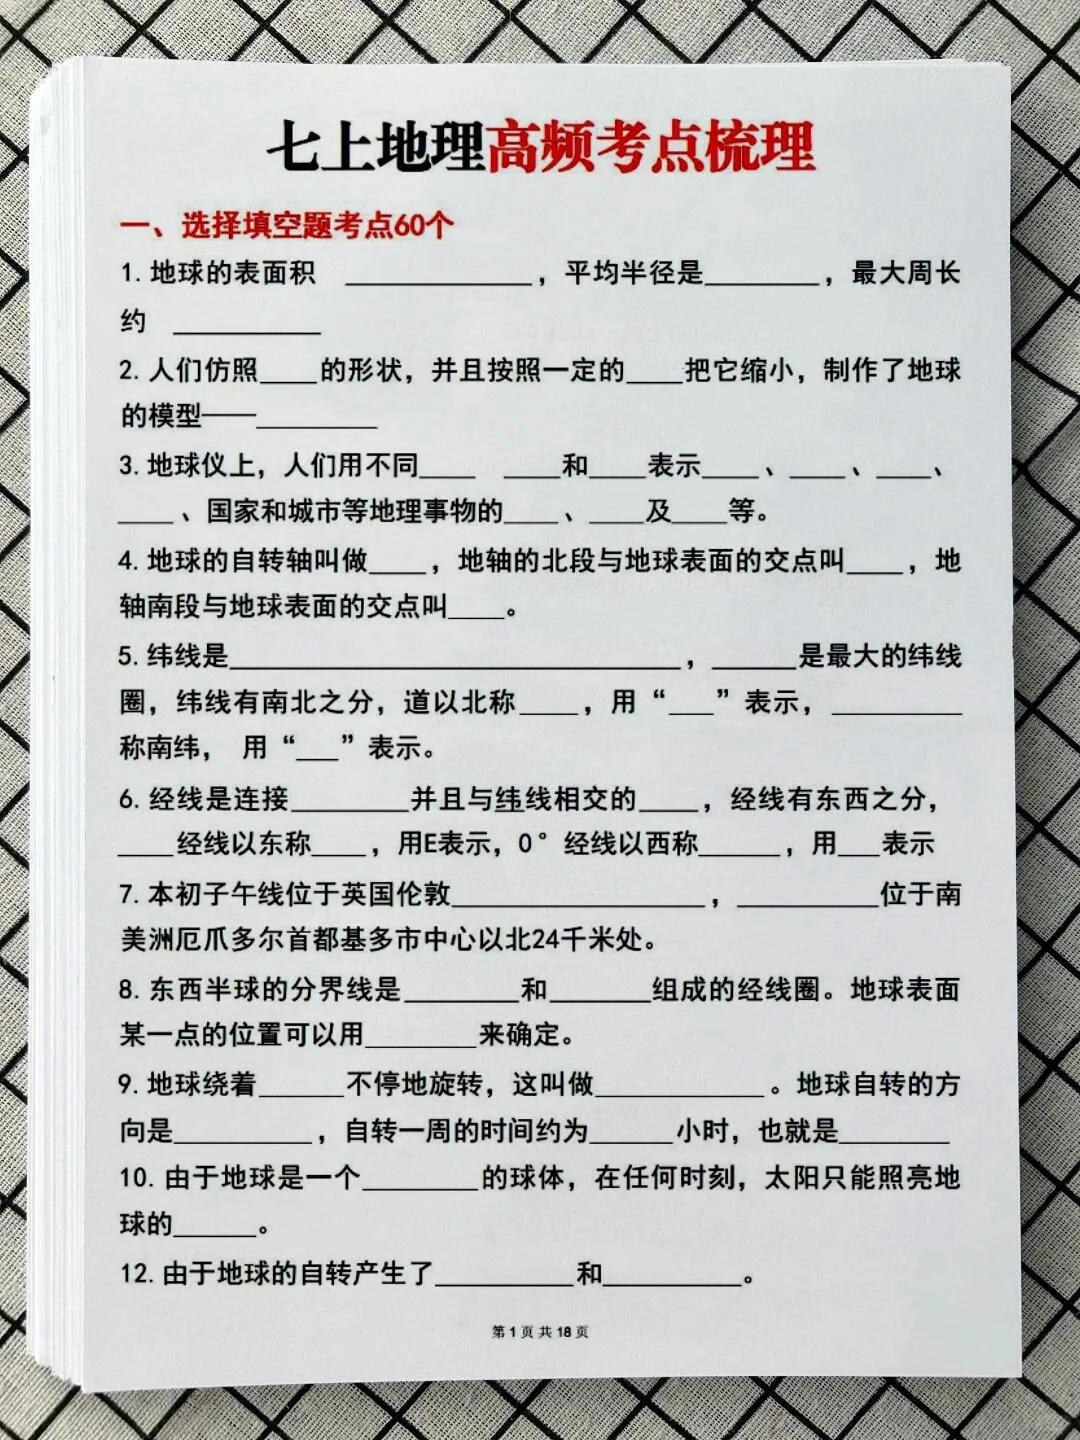 七上地理高频考点梳理
一、选择填空题考点60个
1. 地球的表面积 ______________，平均半径是________，最大周长
约 ___________
2. 人们仿照____的形状，并且按照一定的____把它缩小，制作了地球
的模型——_________
3. 地球仪上，人们用不同____ ____和____表示____、____、____、
____、国家和城市等地理事物的____、____及____等。
4. 地球的自转轴叫做____，地轴的北段与地球表面的交点叫____，地
轴南段与地球表面的交点叫____。
5. 纬线是________________________________，______是最大的纬线
圈，纬线有南北之分，道以北称____，用“___”表示，_________
称南纬， 用“___”表示。
6. 经线是连接________并且与纬线相交的____，经线有东西之分，
____经线以东称____，用E表示，0°经线以西称______，用___表示
7. 本初子午线位于英国伦敦__________________，__________位于南
美洲厄爪多尔首都基多市中心以北24千米处。
8. 东西半球的分界线是________和_______组成的经线圈。地球表面
某一点的位置可以用________来确定。
9. 地球绕着______不停地旋转，这叫做____________。地球自转的方
向是__________，自转一周的时间约为______小时，也就是________
10. 由于地球是一个________的球体，在任何时刻，太阳只能照亮地
球的______。
12. 由于地球的自转产生了__________和__________。
第 1 页 共 18 页